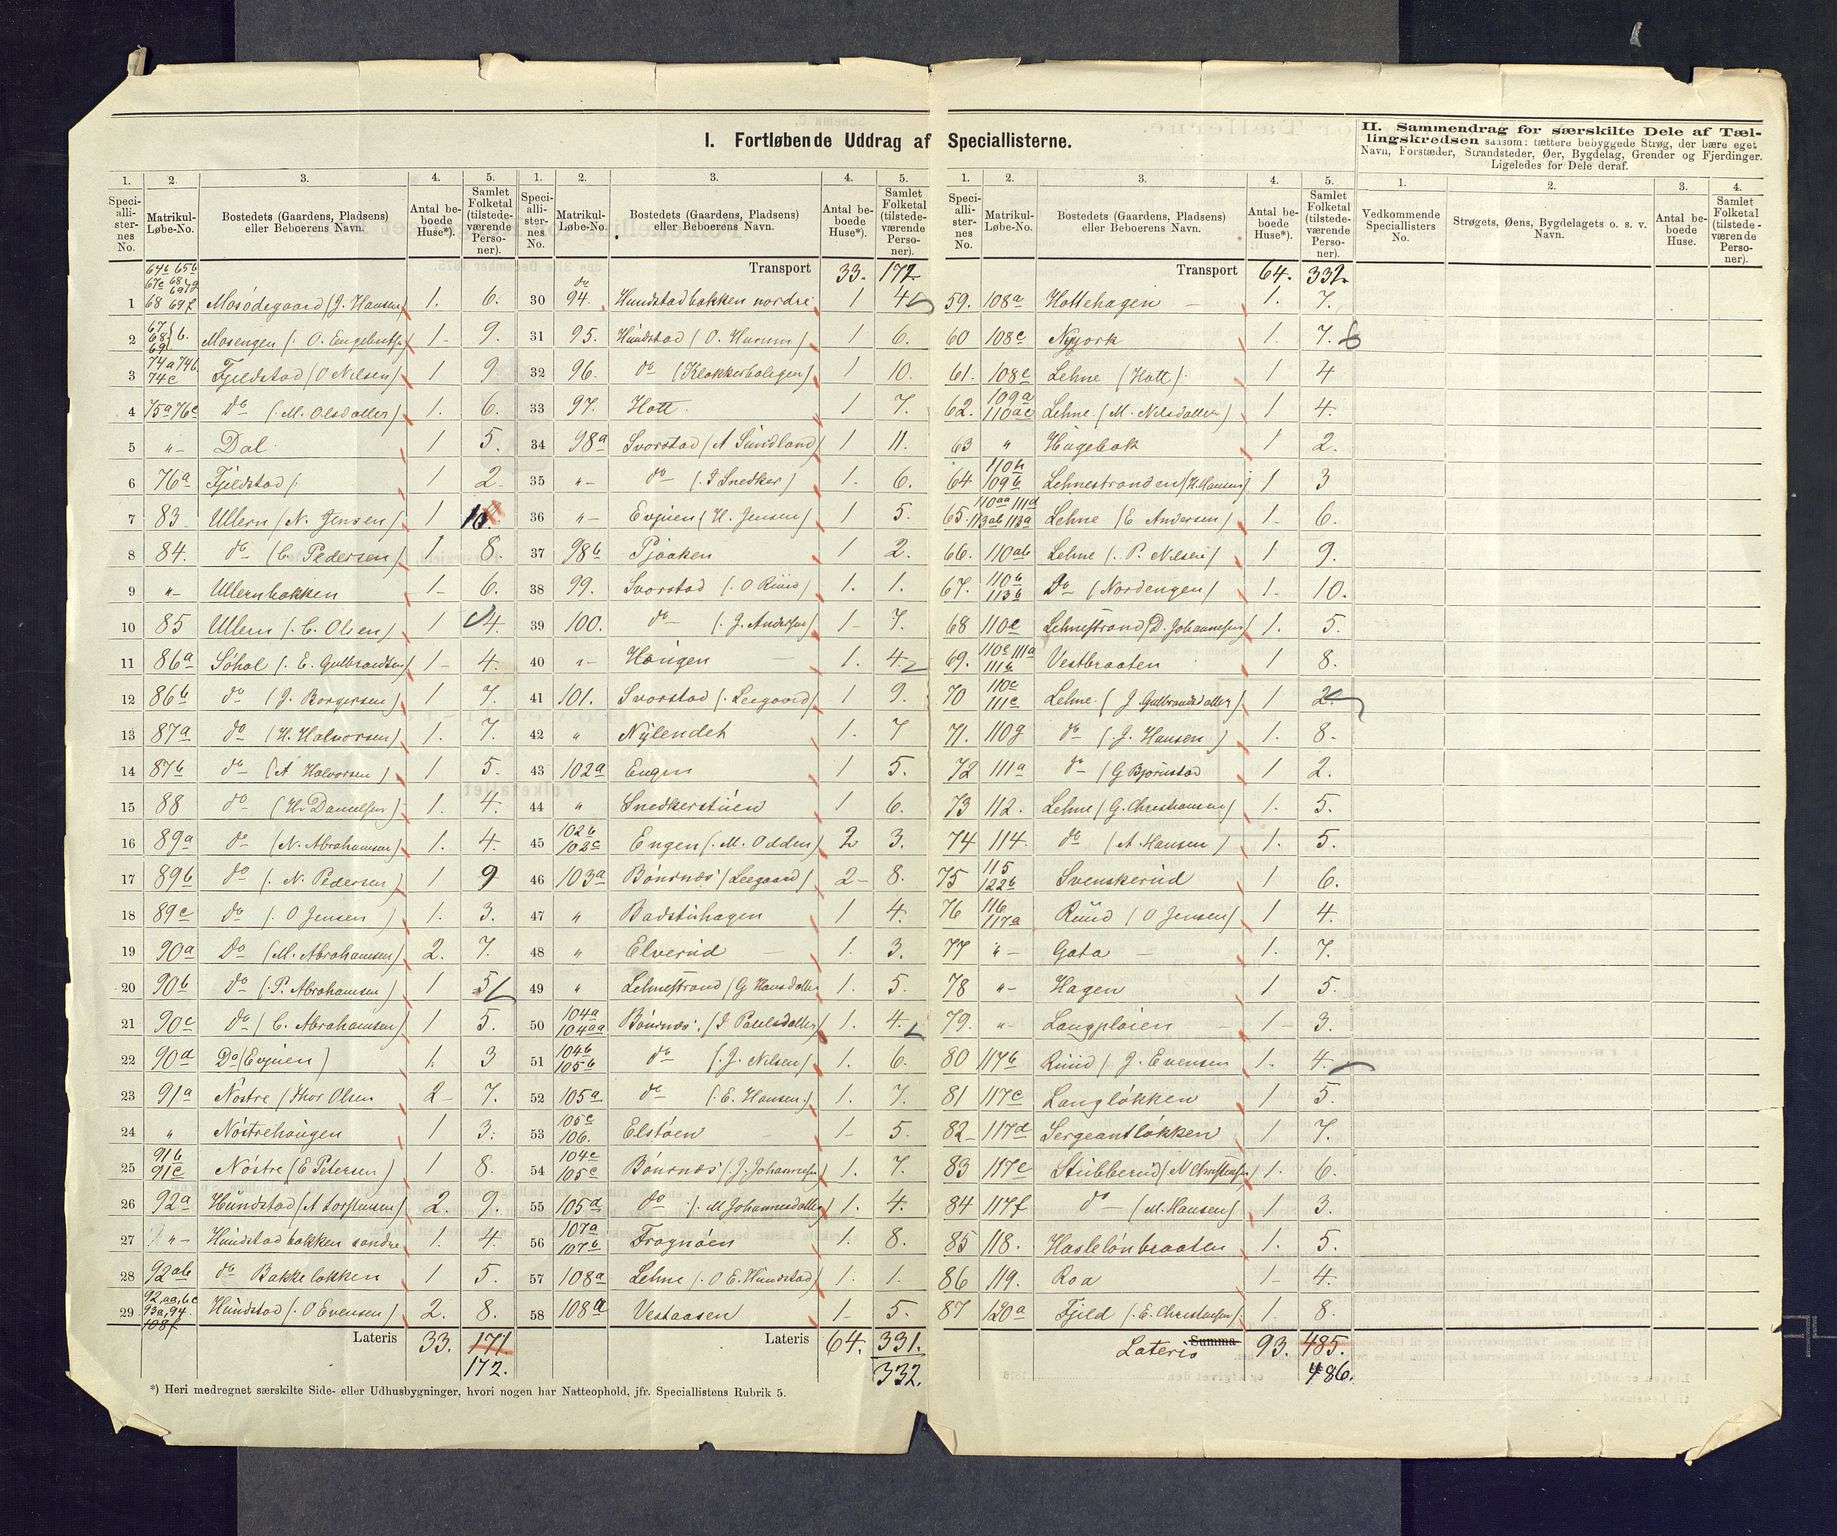 I. Fortløbende Uddrag af Speciallisterne.
II. Sammendrag for særskilte Dele af Tæl-
lingskredsen saasom: tættere bebyggede Strøg, der bære eget
Navn, Forstæder, Strandsteder, Øer, Bygdelag, Grender og Fjerdinger.
Ligeledes for Dele deraf.
1. 2. 3. 4. 5.
Speciallisternes No. Matrikul-Løbe-No. Bostedets (Gaardens, Pladsens) eller Beboerens Navn. Antal beboede Huse*). Samlet Folketal (tilstedeværende Personer).
1 64b 65b 67c 68 69 68 69f Mosødegaard (J. Hansen) 1. 6.
2 67 68 69 b. Mosengen (: O. Engebretsen) 1 9.
3 74a 74b 74c Fjeldstad (O Nilsen) 1 9
4 75a 76c do (: M. Olsdatter) 1. 6.
5 " Dal 1 5.
6 76a Fjeldstad (: 1 2
7 83 Ullern (N. Jensen) 1 10
8 84. do (C. Pedersen) 1 8.
9 " Ullernbakken 1 6.
10 85 Ullern (: C. Olsen) 1 4.
11 86a Søhol (: E. Gulbrandsen) 1 4.
12 86b do (J. Borgersen) 1 7.
13 87a do (H. Halvorsen) 1. 7.
14 87b do (A Halvorsen) 1 5.
15 88 do (H. Danielsen) 1. 4.
16 89a do (N. Abrahamsen) 1. 4.
17 89b do (: N. Pedersen) 1 9
18 89c do (: O Jensen) 1. 3.
19 90a Do (M. Abrahamsen) 2. 7.
20 90b do (: P. Abrahamsen) 1 5
21 90c do (C. Abrahamsen) 1 5.
22 90d Do (Evjuen) 1. 3
23 91a Nøstre (Thor Olsen 2 7.
24 " Nøstrehaugen 1 3.
25 91b 91c Nøstre (E Petersen) 1 8.
26 92a Hundstad (A Torstensen) 2. 9.
27 " Hundstadbakken søndre 1. 4.
28 92ab do Bakkeløkken 1 5.
29 92,aa,bc 93a,94. 108f Hundstad (: O Evensen) 2. 8.
Lateris 33. 171 172.
*) Heri medregnet særskilte Side- eller Udhusbygninger, hvori nogen har Natteophold, jfr. Speciallistens Rubrik 5.
1. 2. 3. 4. 5.
Speciallisternes No. Matrikul-Løbe-No. Bostedets (Gaardens, Pladsens) eller Beboerens Navn. Antal beboede Huse*). Samlet Folketal (tilstedeværende Personer).
Transport 33. 172
30 do 94. Hundstadbakken nordre 1 4
31 95. Hundstad (O. Hurum) 1 6.
32 96. do (Klokkerboligen) 1 10.
33 97. Hott. 1 7.
34 98a Svorstad (A Sundland) 1 11.
35 " do (: J Snedker) 1. 6.
36 " Evjuen (H. Jensen) 1 5.
37 98b Pjaaken 1 2.
38 99. Svorstad (: O Ruud) 1. 1.
39 100. do (: J. Andersen) 1 7.
40 " Haugen 1. 4.
41 101. Svorstad (: Leegaard) 1 9.
42 " Nylendet 1. 7
43 102a Engen 1 5.
44 " Snedkerstuen 1 6.
45 102b 102c Engen (: M. Odden) 2 3.
46 103a Bønsnæs (Leegaard) 2 8.
47 " Badstuhagen 1 4.
48 " Elverud 1. 3.
49 " Lehnestrand (G Hansdatter 1. 5.
50 104a 104aa Bønsnæs. (I Paulsdatter) 1. 4.
51 104b 105b do (: J. Nilsen) 1. 6.
52 105a do (: E. Hansen:) 1. 7.
53 105c 106. Elstøen 1 5.
54 104c 105c Bønsnæs (: J. Johannesen) 1. 7.
55 105d do (: M Johannesdatter) 1. 4.
56 107a 107b Frognøen 1. 8.
57 108a Lehne (: O E. Hundstad) 1. 1.
58 108a Vestaasen 1 5.
Lateris 64. 331. 332.
1. 2. 3. 4. 5.
Speciallisternes No. Matrikul-Løbe-No. Bostedets (Gaardens, Pladsens) eller Beboerens Navn. Antal beboede Huse*). Samlet Folketal (tilstedeværende Personer).
Transport 64. 332.
59. 108a Hottehagen 1. 7.
60 108c Nyjork 1. 7.
61. 108c Lehne (Hott): 1 4
62. 109a 110ac Lehne (M. Nilsdatter) 1 4.
63 " Hugebak 1 2.
64 110b 109b Lehnestranden (H. Hansen) 1 3
65. 110aa 111d 113ab 113a Lehne (E Andersen) 1 6.
66. 110ab Lehne (: P. Nilsen) 1 9.
67. 110b 113b Do (Nordengen) 1 10.
68 110c Lehnestrand (D. Johannesen) 1. 5.
69. 110c 111a 111b Vestbraaten 1 8.
70 110c 111c Lehne (J. Gulbrandsdatter) 1 2.
71. 110g do (: J. Hansen) 1. 8.
72 111a do (G Bjørnstad 1 2.
73 112. Lehne (G. Christiansen) 1. 5.
74 114. do (A. Hansen) 1. 5.
75 115 122b Svenskerud 1 6.
76 116. 117a Ruud (O Jensen) 1 4.
77 " Gata 1. 7.
78 " Hagen 1 5.
79. " Langpløien 1 3.
80 117b Ruud (J. Evensen 1. 4.
81 117c Langløkken 1 5.
82 117d Sergeantløkken 1 7.
83 117e Stubberud (N Christensen) 1. 6.
84 117f do (M. Hansen) 1 3.
85 118. Hasleiønbraaten 1. 5.
86 119. Roa 1 4.
87 120a Fjeld (: E. Christensen) 1. 8.
Lateris Summa 93. 485. 486.
1. 2. 3. 4.
Vedkommende Speciallisters No. Strøgets, Øens, Bygdelagets o. s. v. Navn. Antal beboede Huse. Samlet Folketal (tilstedeværende Personer).